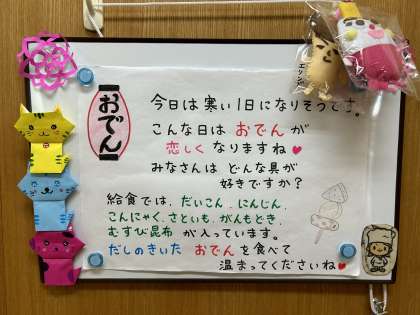 おでん
今日は寒い1日になりそうです。
こんな日は おでん が
恋しく なりますね♥
みなさんは どんな具が
好きですか？
給食では、だいこん、にんじん、
こんにゃく、さといも、がんもどき、
むすび昆布 が入っています。
だしのきいた おでん を食べて
温まってくださいね♥